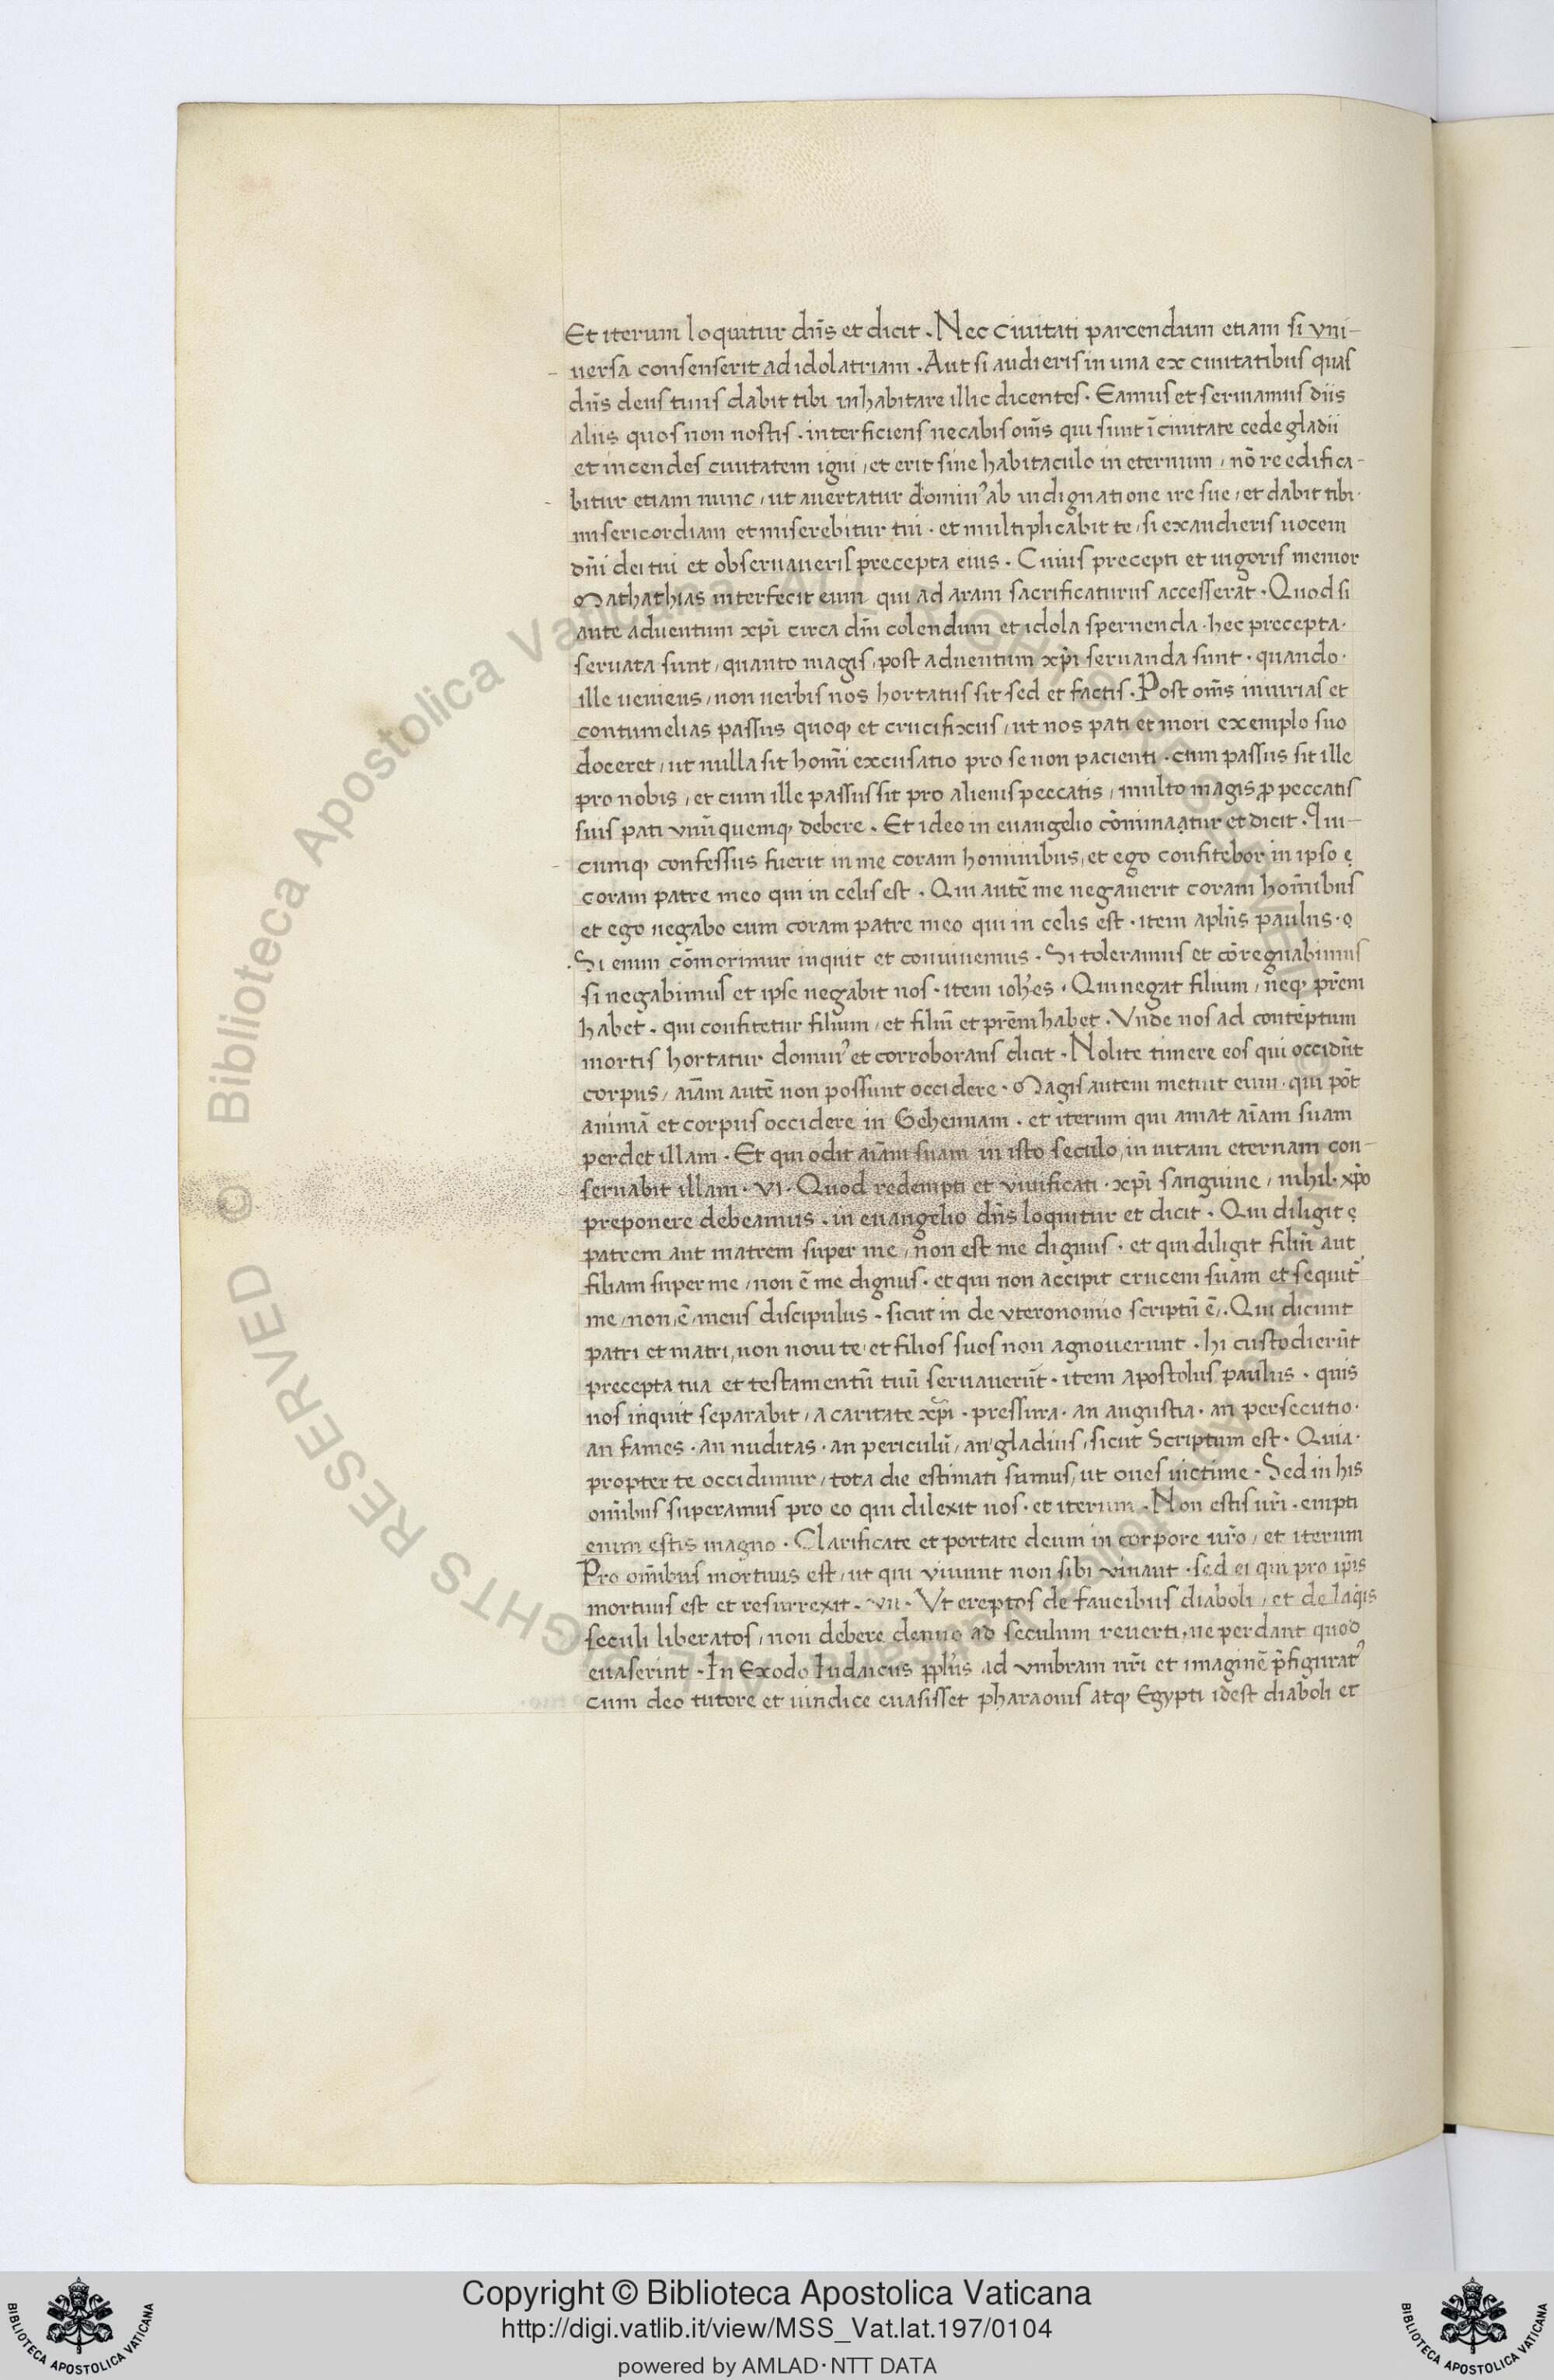 Et iterum loquitur dn̄s et dicit . Nec ciuitati parcendum etiam si vni-
uersa consenserit ad idolatriam . Aut si audieris in una ex ciuitatibus quas
dn̄s deus tuus dabit tibi inhabitare illic dicentes . Eamus et seruiamus diis
aliis quos non nostis . interficiens necabis om̄s qui sunt ī ciuitate cede gladii
et incendes ciuitatem igni / et erit sine habitaculo in eternum / nō reedifica-
bitur etiam nunc / ut auertatur dominꝰ ab indignatione ire sue / et dabit tibi.
misericordiam et miserebitur tui . et multiplicabit te / si exaudieris uocem
dn̄i dei tui et obseruaueris precepta eius . Cuius precepti et uigoris memor
Mathathias interfecit eum qui ad aram sacrificaturus accesserat . Quod si
ante aduentum xp̄i circa dm̄ colendum et idola spernenda . hec precepta.
seruata sunt / quanto magis / post aduentum xp̄i seruanda sunt . quando.
ille ueniens / non uerbis nos hortatus sit sed et factis . Post om̄s iniurias et
contumelias passus quoqꝫ et crucifixus / ut nos pati et mori exemplo suo
doceret / ut nulla sit hom̄i excusatio pro se non pacienti . cum passus sit ille
pro nobis / et cum ille passus sit pro alienis peccatis / multo magis ꝓ peccatis
suis pati vnū quemqꝫ debere . Et ideo in euangelio cōminaatur et dicit . Qui-
cumqꝫ confessus fuerit in me coram hominibus / et ego confitebor in ipso
coram patre meo qui in celis est . Qui autē me negauerit coram hom̄ibus
et ego negabo eum coram patre meo qui in celis est . item apl̄us paulus .
.Si enim cōmorimur inquit et conuiuemus . Si toleramus et cōregnabimus
si negabimus et ipse negabit nos . item ioh̄es . Qui negat filium / neqꝫ pr̄em
habet . qui confitetur filium / et filiū et pr̄em habet . Vnde nos ad contēptum
mortis hortatur dominꝰ et corroborans dicit . Nolite timere eos qui occidūt
corpus / aīam autē non possunt occidere . Magis autem metuit eum . qui pōt
animā et corpus occidere in Gehennam . et iterum qui amat aīam suam
perdet illam . Et qui odit aīam suam in isto seculo / in uitam eternam con-
seruabit illam . VI . Quod redempti et viuificati . xp̄i sanguine / nihil . xp̄o
preponere debeamus . in euangelio dn̄s loquitur et dicit . Qui diligit
patrem aut matrem super me / non est me dignus . et qui diligit filiū aut
filiam super me / non ē me dignus . et qui non accipit crucem suam et sequit̄
me / non / ē / meus discipulus . sicut in de vteronomio scriptū ē / . Qui dicunt
patri et matri / non noui te / et filios suos non agnouerunt . hi custodierūt
precepta tua et testamentū tuū seruauerūt . item apostolus paulus . quis
nos inquit separabit / a caritate xp̄i . pressura . an angustia . an persecutio .
an fames . an nuditas . an periculū / an gladius / sicut Scriptum est . Quia .
propter te occidimur / tota die estimati sumus / ut oues uictime . Sed in his
om̄ibus superamus pro eo qui dilexit nos . et iterum . Non estis ur̄i . empti
enim estis magno . Clarificate et portate deum in corpore ur̄o / et iterum
Pro om̄ibus mortuus est / ut qui viuunt non sibi viuant . sed ei qui pro ip̄is
mortuus est et resurrexit . VII . Vt ereptos de faucibus diaboli / et de laq̄is
seculi liberatos / non debere denuo ad seculum reuerti / ne perdant quod
euaserint . In Exodo Iudaicus ppl̄us ad vmbram nr̄i et imaginē p̄figuratꝰ
cum deo tutore et uindice euasisset pharaonis atqꝫ Egypti idest diaboli et
© Biblioteca Apostolica Vaticana ALL RIGHTS RESERVED
Copyright © Biblioteca Apostolica Vaticana
http://digi.vatlib.it/view/MSS_Vat.lat.197/0104
powered by AMLAD·NTT DATA
BIBLIOTECA APOSTOLICA VATICANA
BIBLIOTECA APOSTOLICA VATICANA